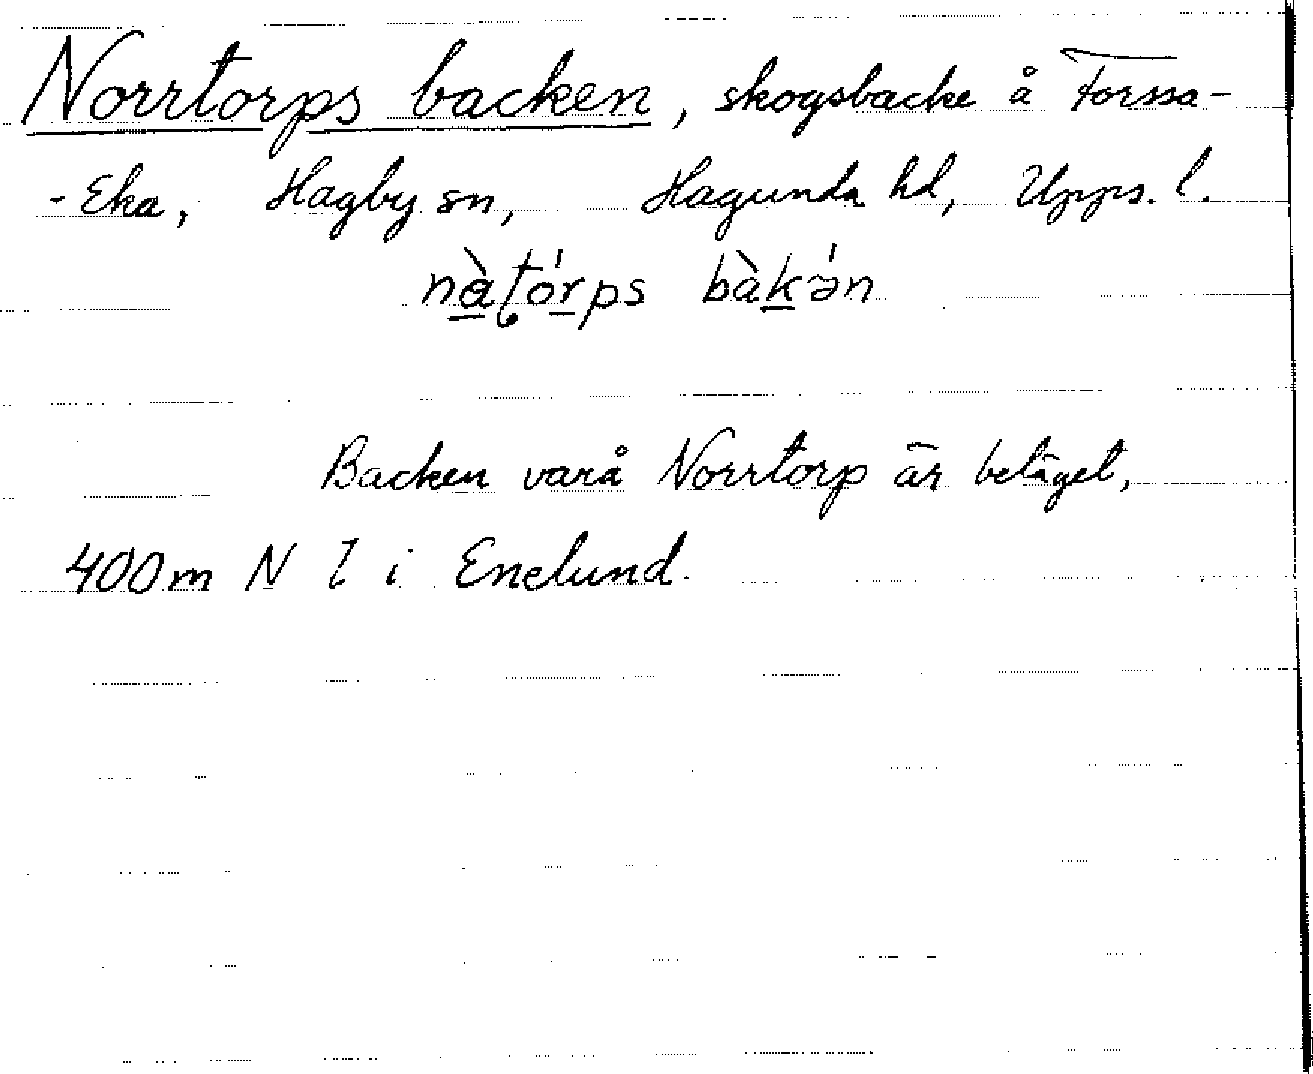 Norrtorps backen, skogsbacke å Forssa-
-Eka, Hagby sn, Hagunda hd, Upps. l.
nàtórps bàkən
Backen varå Norrtorp är beläget,
400m N l i Enelund.